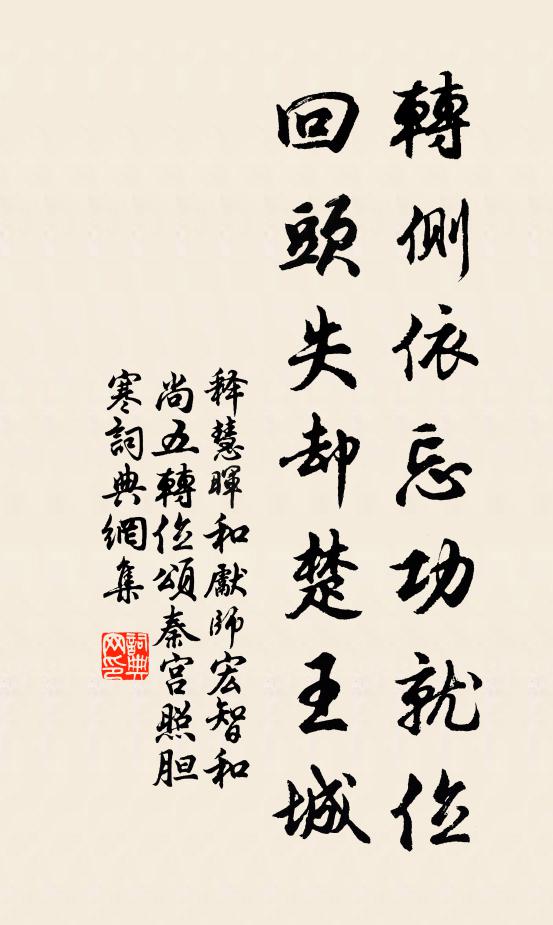 轉側依忘功就位
回頭失却楚王城
释慧暉和獻師宏智和
尚五轉位頌秦宫照胆
寒詞典網集
詞典网印